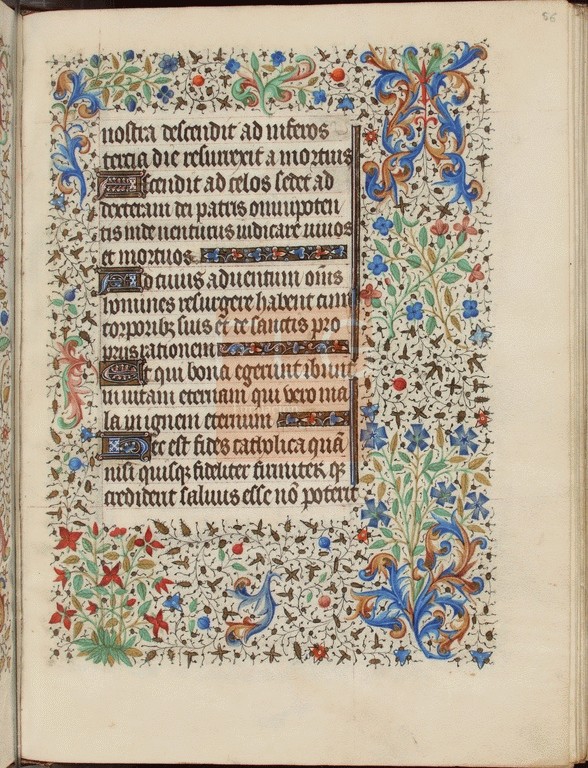 56
nostra descendit ad inferos
tercia die resurrexit a mortuis
Ascendit ad celos sedet ad
dexteram dei patris omnipoten
tis inde uenturus iudicare uiuos
et mortuos
Ad cuius aduentum om̄s
homines resurgere habent cum
corporibꝫ suis et de factis pro
prijs rationem
Et qui bona egerunt ibunt
in uitam eternam qui uero ma
la in ignem eternum
Hec est fides catholica quā
nisi quisqꝫ fideliter firmiterqꝫ
crediderit saluus esse nō poterit